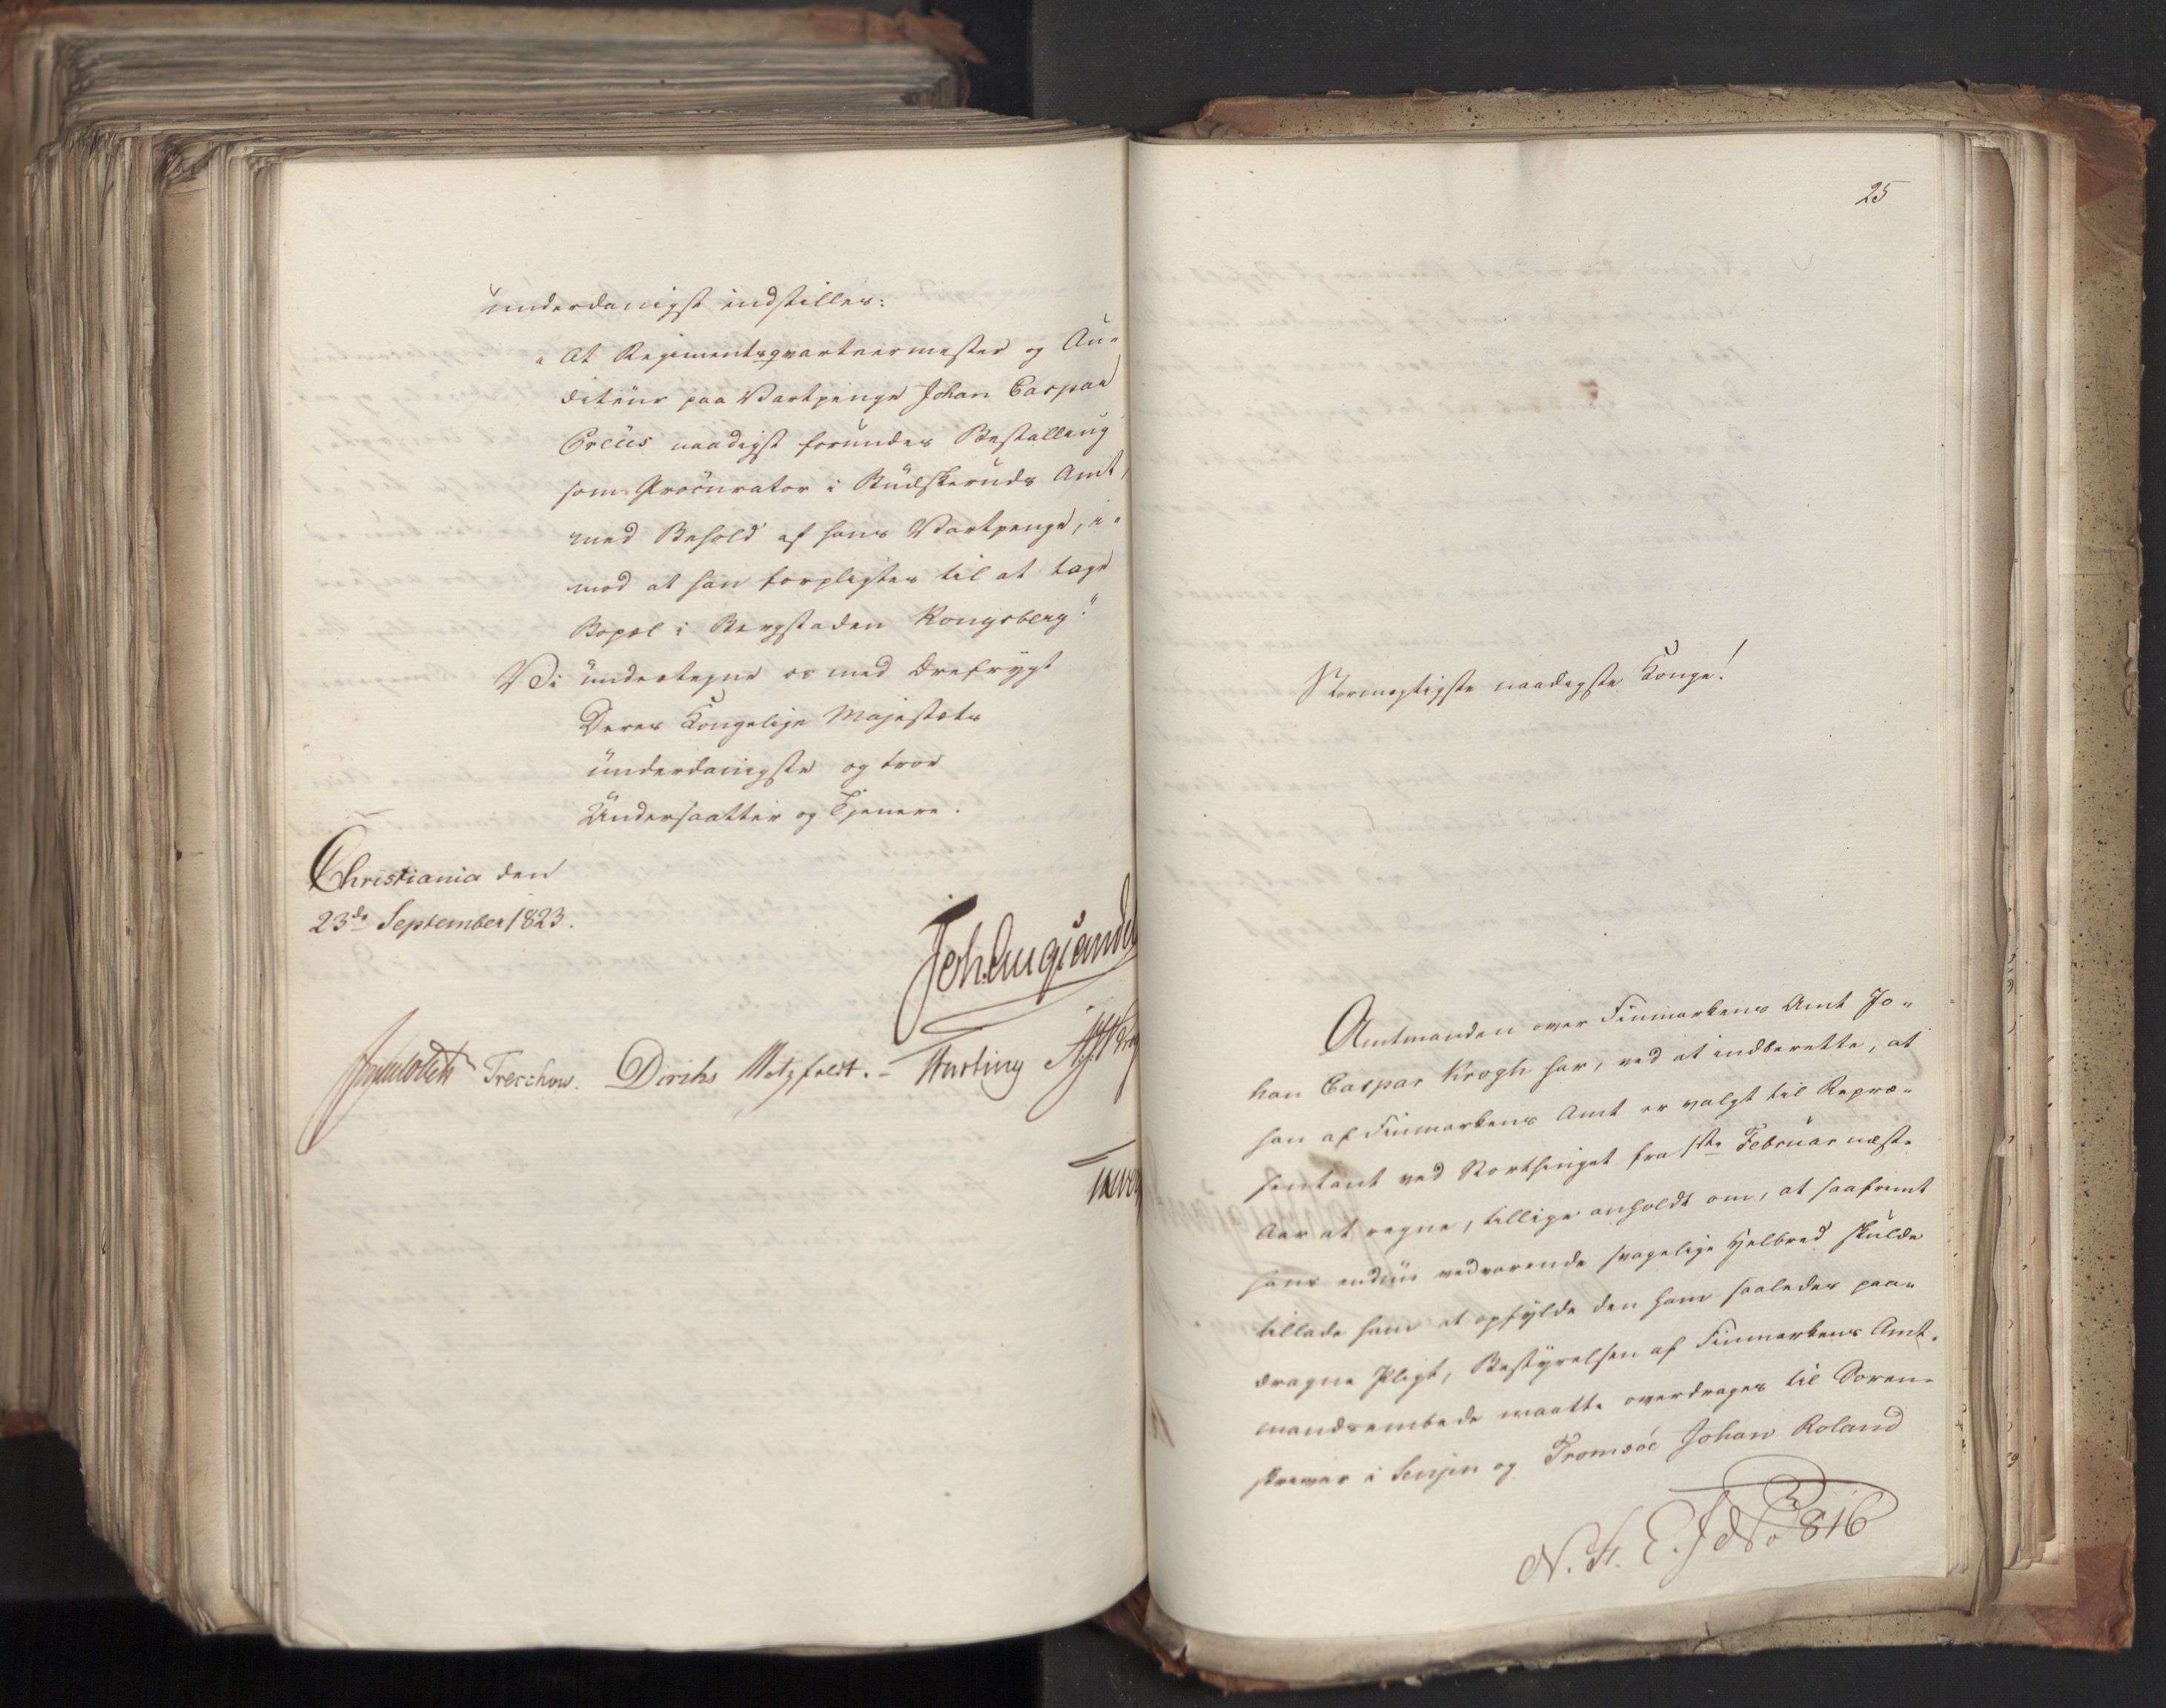 underdanigst indstilles:
"At Regimentsqvarteermester og Au-
diteur paa Vartpenge Johan Caspar
Preüs naadigst forundes Bestalling
som Procurator i Budskeruds Amt,
med Behold af hans Vartpenge, i-
mod at han forpligtes til at tage
Bopæl i Bergstaden Kongsberg."
Vi undertegne os med Ærefrygt
Deres Kongelige Majestæts
underdanigste og troe
Undersaatter og Tjenere.
Christiania den
23de September 1823.
Joh. Aug. Sandel
Sommerhielm Treschow. Diriks Motzfeldt. Fasting
25
Stormægtigste naadigste Konge!
Amtmanden over Finmarkens Amt Jo-
han Caspar Krogh har, ved at indberette, at
han af Finmarkens Amt er valgt til Repræ-
sentant ved Storthinget fra 1ste Februar næste
Aar at regne, tillige anholdt om, at saafremt
hans endnu vedvarende svagelige Helbred skulde
tillade ham at opfylde den ham saaledes paa-
dragne Pligt, Bestyrelsen af Finmarkens Amt-
mandsembede maatte overdrages til Soren-
skriver i Senjen og Tromsöe Johan Roland
N. H. E. J No 816